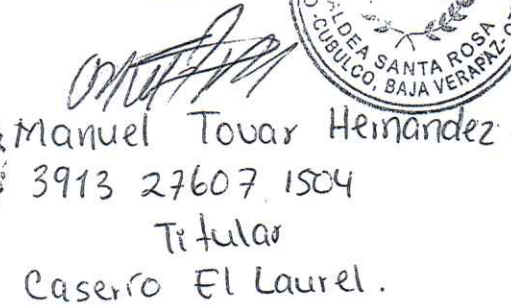 ALDEA SANTA ROSA
CUBULCO, BAJA VERAPAZ
Manuel Tovar Hernandez
3913 27607 1504
Titular
Caserío El Laurel.